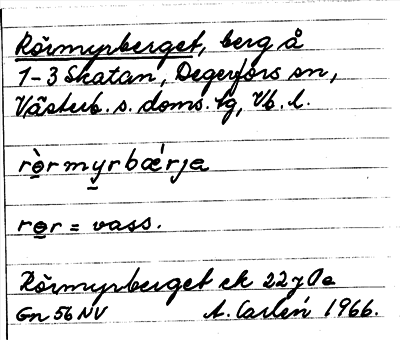 Rörmyrberget, berg å
1-3 Skatan, Degerfors sn,
Västerb. s. doms. tg, Vb. l.
rö̀rmyrbǽrja
rør = vass.
Rörmyrberget ek 22
Gn 56 NV A. Carlén 1966.